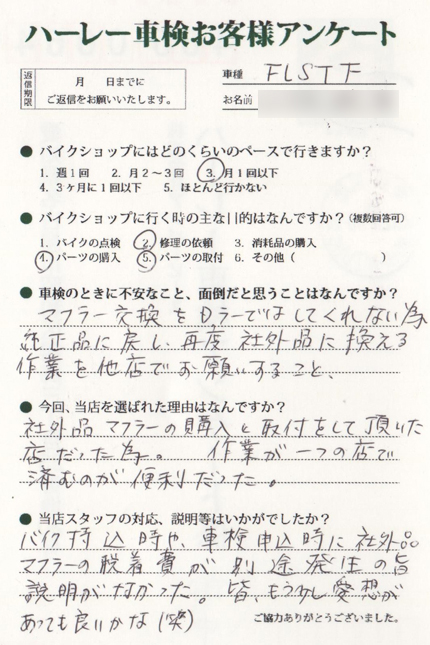 ハーレー車検お客様アンケート
返信期限
月　日までに
ご返信をお願いいたします。
車種 FLSTF
お名前
● バイクショップにはどのくらいのペースで行きますか？
1. 週1回　2. 月2～3回　3. 月1回以下
4. 3ヶ月に1回以下　5. ほとんど行かない
● バイクショップに行く時の主な目的はなんですか？(複数回答可)
1. バイクの点検　2. 修理の依頼　3. 消耗品の購入
4. パーツの購入　5. パーツの取付　6. その他（　　　）
● 車検のときに不安なこと、面倒だと思うことはなんですか？
マフラー交換をDラーではしてくれない為
純正品に戻し、再度社外品に換える
作業を他店でお願いすること、
● 今回、当店を選ばれた理由はなんですか？
社外品マフラーの購入と取付をして頂いた
店だった為。　作業が一つの店で
済むのが便利だった。
● 当店スタッフの対応、説明等はいかがでしたか？
バイク持込時や、車検申込時に社外品
マフラーの脱着費が別途発生の旨
説明がなかった。皆、もう少し愛想が
あっても良いかな(笑)
ご協力ありがとうございました。